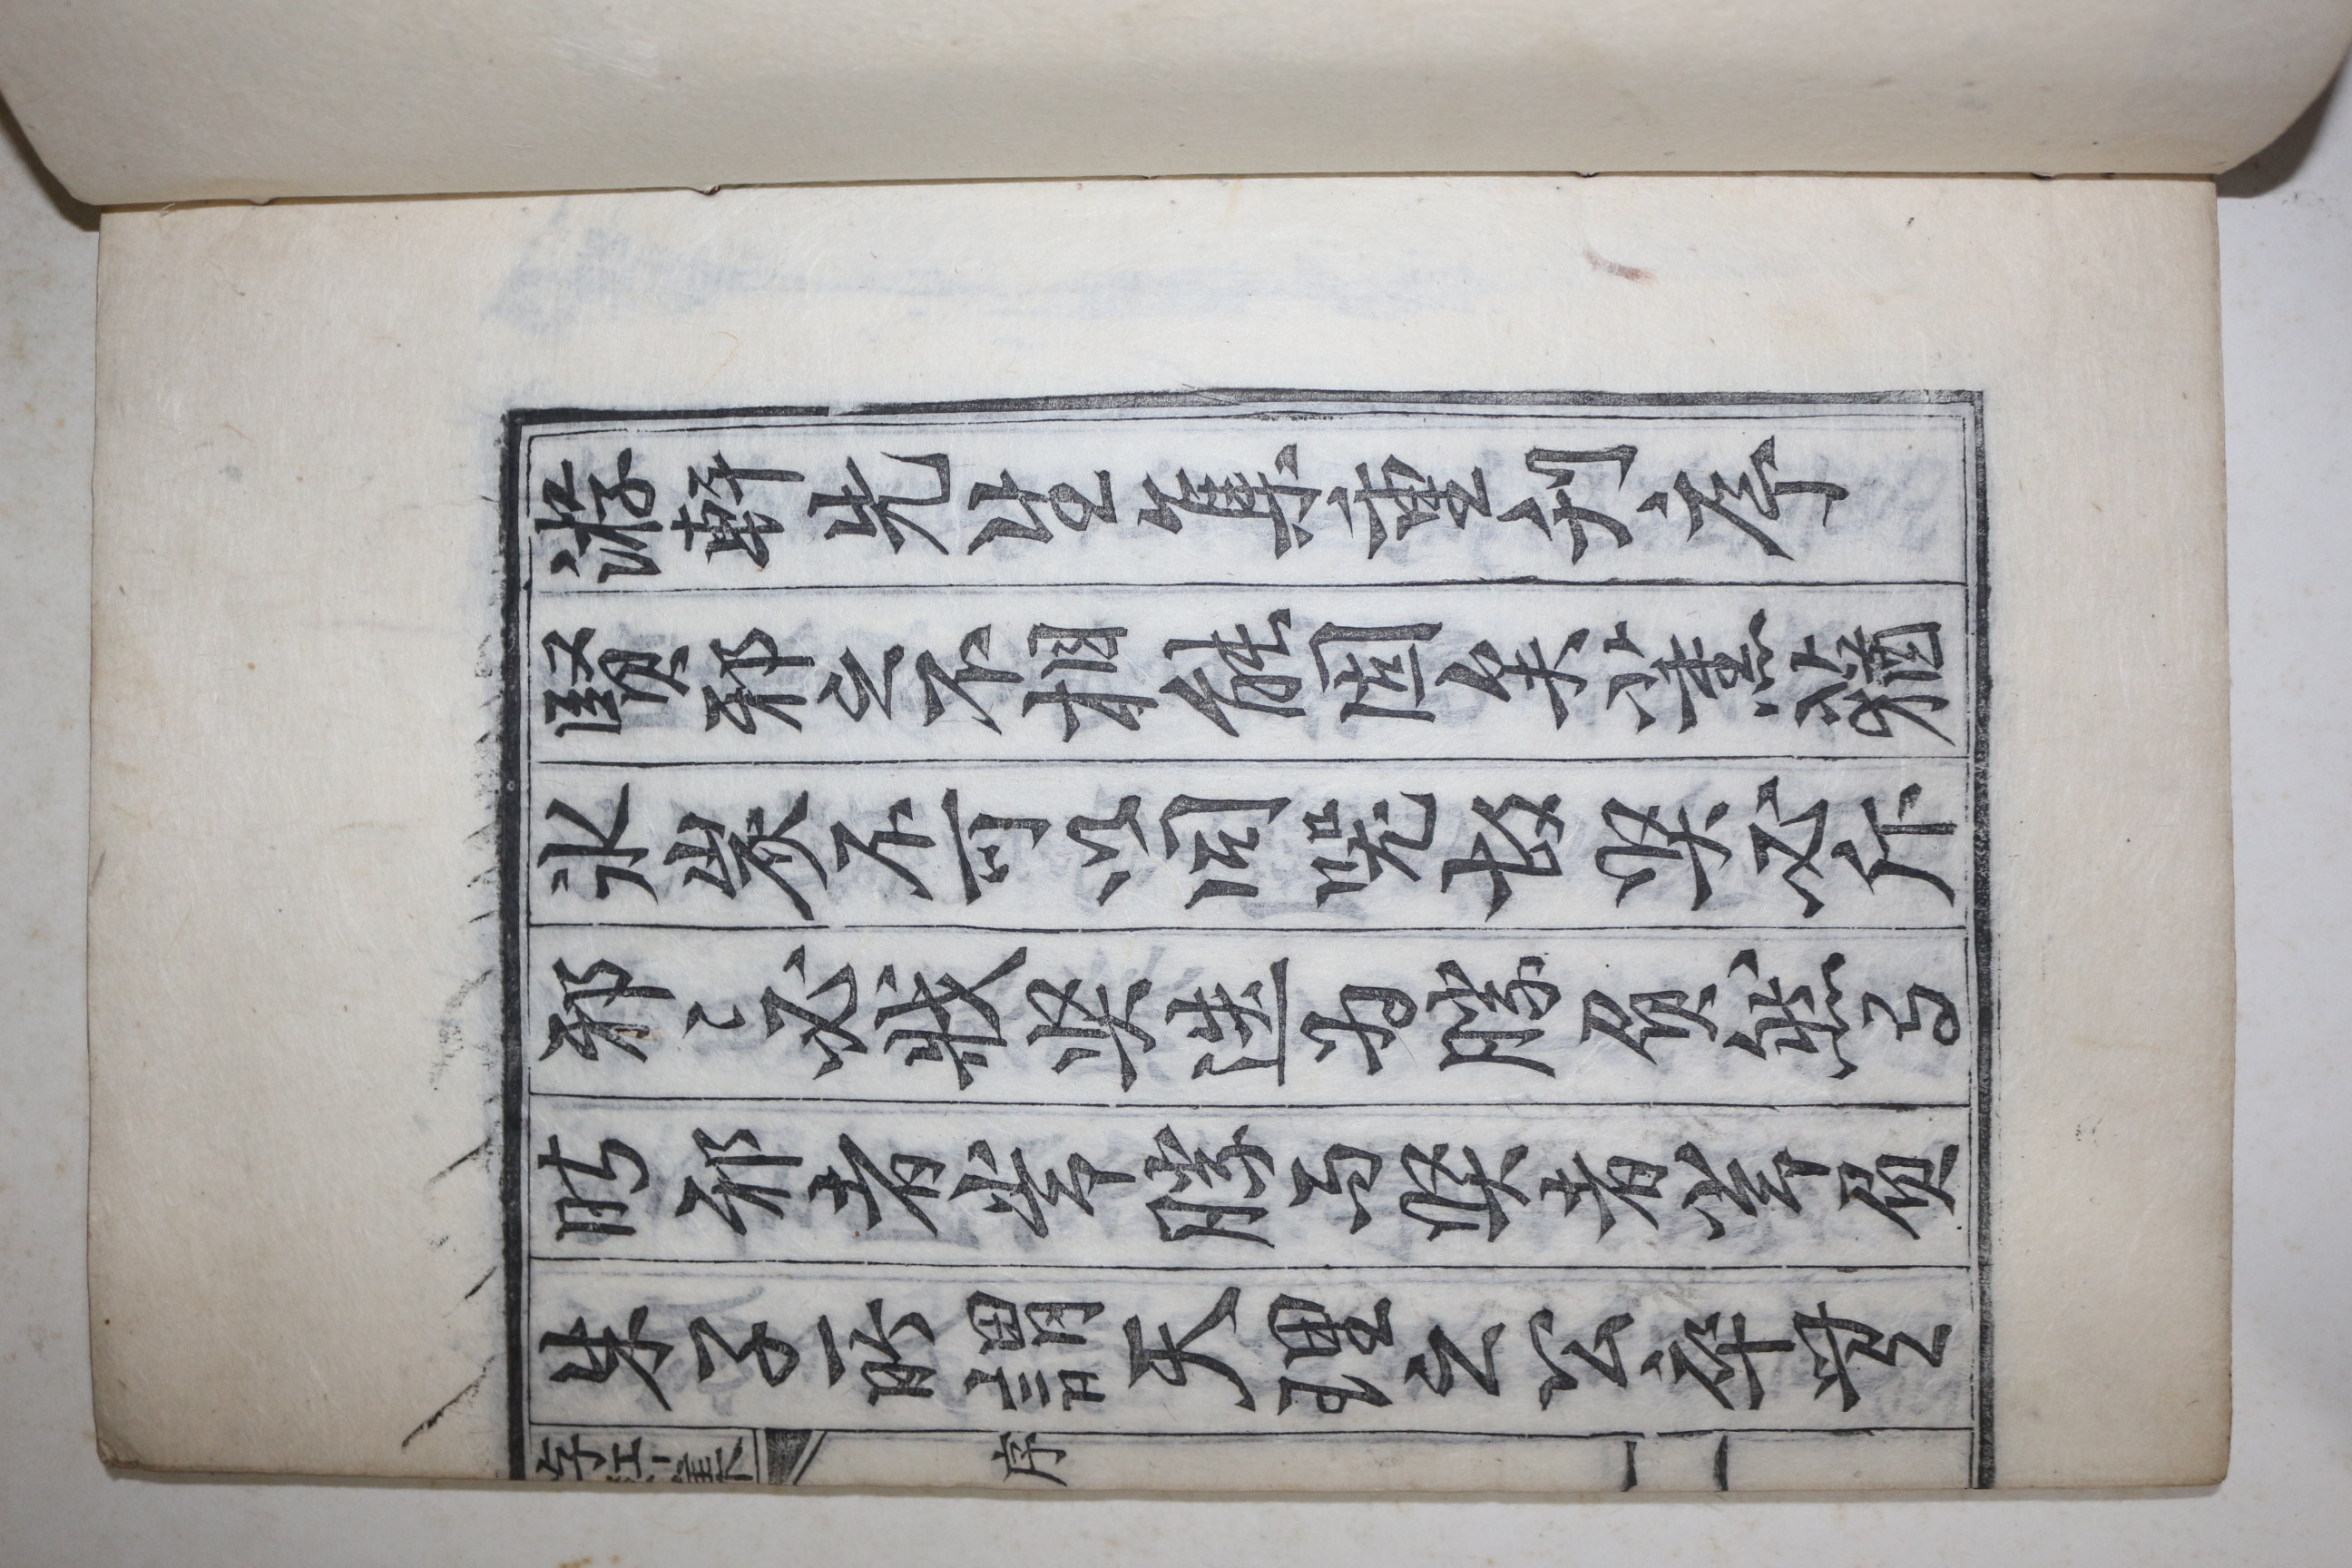 游軒先生集重刊序
賢邪之不相能固矣薰蕕
氷炭不可以同器故賢必斥
邪〻必戕賢迭为勝負然而
時邪者常勝而賢者常負
朱子所謂天理之公卒無
游軒集 序 一